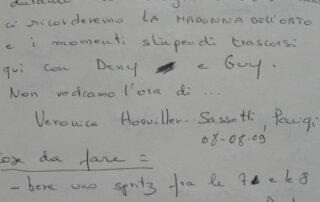 ci ricorderemo LA MADONNA DELL'ORTO
e i momenti stupendi trascorsi
qui con Deny e Guy.
Non vediamo l'ora di ...
Veronica Sassetti, Parigi
08-08-09
cose da fare =
- bere uno spritz fra le 7 e le 8